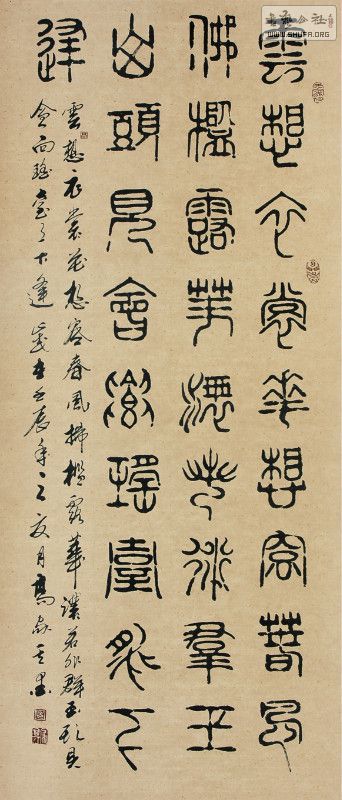 雲想衣裳華想容春風
拂檻露華濃若非群玉
山頭見會向瑤臺月下
逢
雲想衣裳花想容春風拂檻露華濃若非群玉頭見
會向瑤臺月下逢 歲在壬辰年之亥月高
WWW.SHUFA.ORG